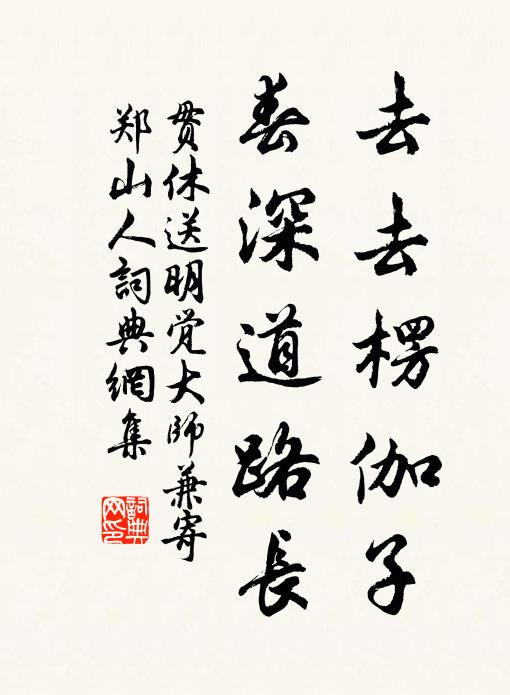 去去楞伽子
春深道路長
贯休送明觉大师兼寄
郑山人詞典網集
詞典
网印